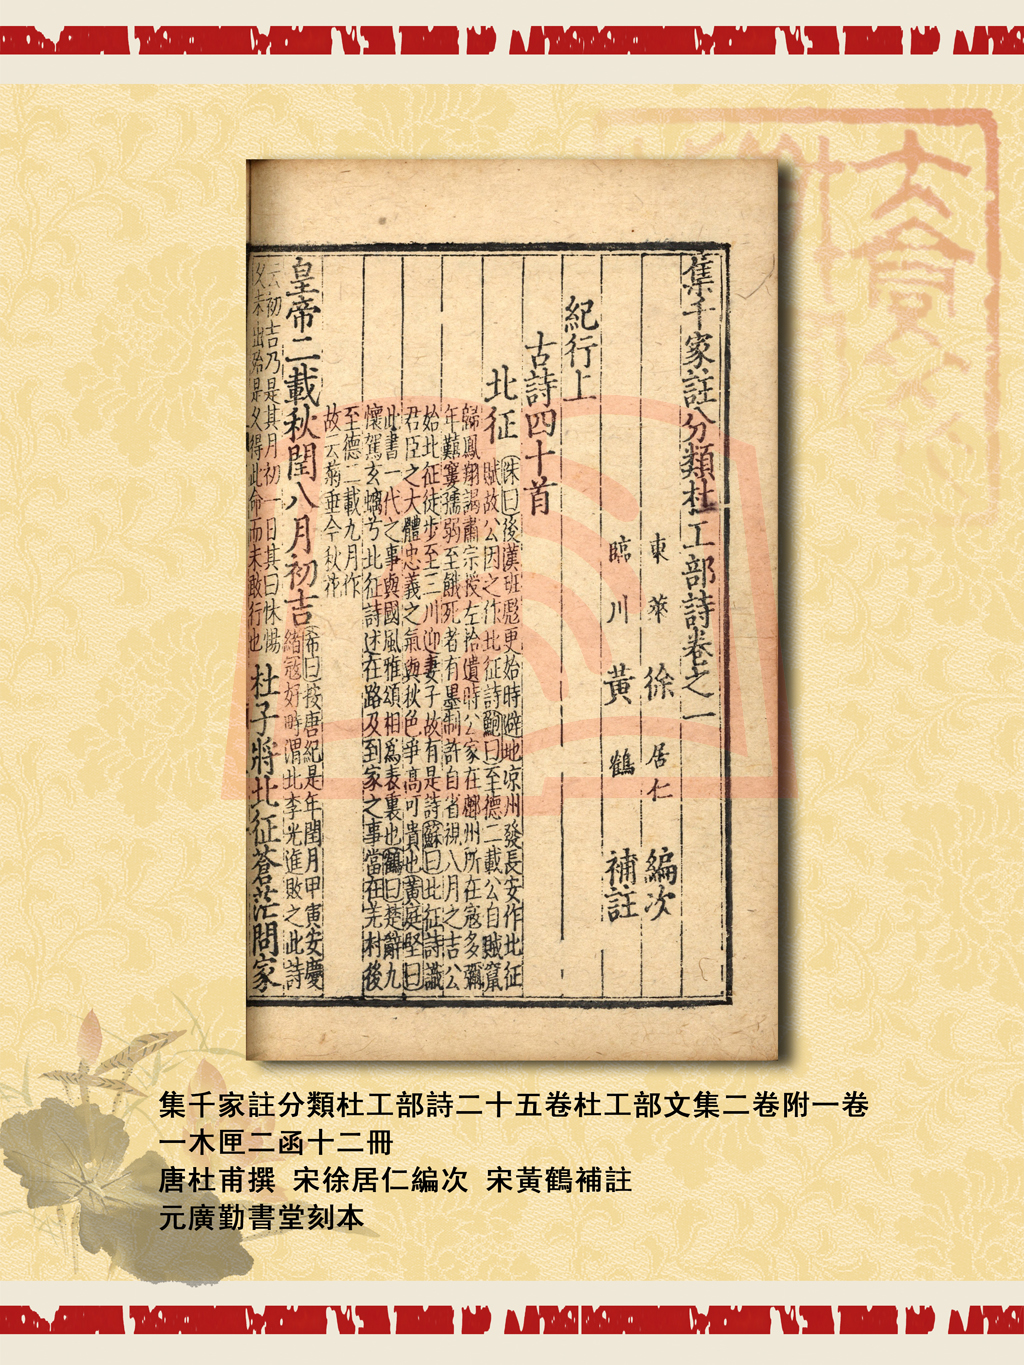 集千家註分類杜工部詩卷之一
東萊 徐居仁 編次
臨川 黃鶴 補註
紀行上
古詩四十首
北征 洙曰後漢班彪更始時避地凉州發長安作北征
賦故公因之作北征詩鮑曰至德二載公自賊竄
歸鳳翔謁肅宗授左拾遺時公家在鄜州所在寇多彌
年艱窶孺弱至餓死者有墨制許自省視八月之吉公
始北征徒步至三川迎妻子故有是詩蘇曰北征詩識
君臣之大體忠義之氣與秋色爭高可貴也黃庭堅曰
此書一代之事與國風雅頌相爲表裏也鶴曰楚辭九
懷駕玄螭兮北征詩述在路及到家之事當在羌村後
至德二載九月作
故云菊垂今秋花
皇帝二載秋閏八月初吉 希曰按唐紀是年閏月甲寅安慶
緒寇好畤渭北李光進敗之此詩
云初吉乃是其月初一日其曰怵惕
夕未出殆是夕得此命而未敢行也
杜子將北征蒼茫問家
集千家註分類杜工部詩二十五卷杜工部文集二卷附一卷
一木匣二函十二冊
唐杜甫撰 宋徐居仁編次 宋黃鶴補註
元廣勤書堂刻本